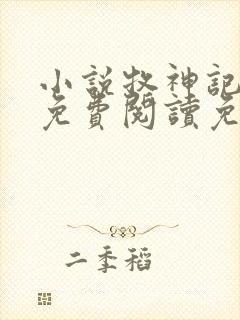 小說牧神記
免費閱讀免
二季稻